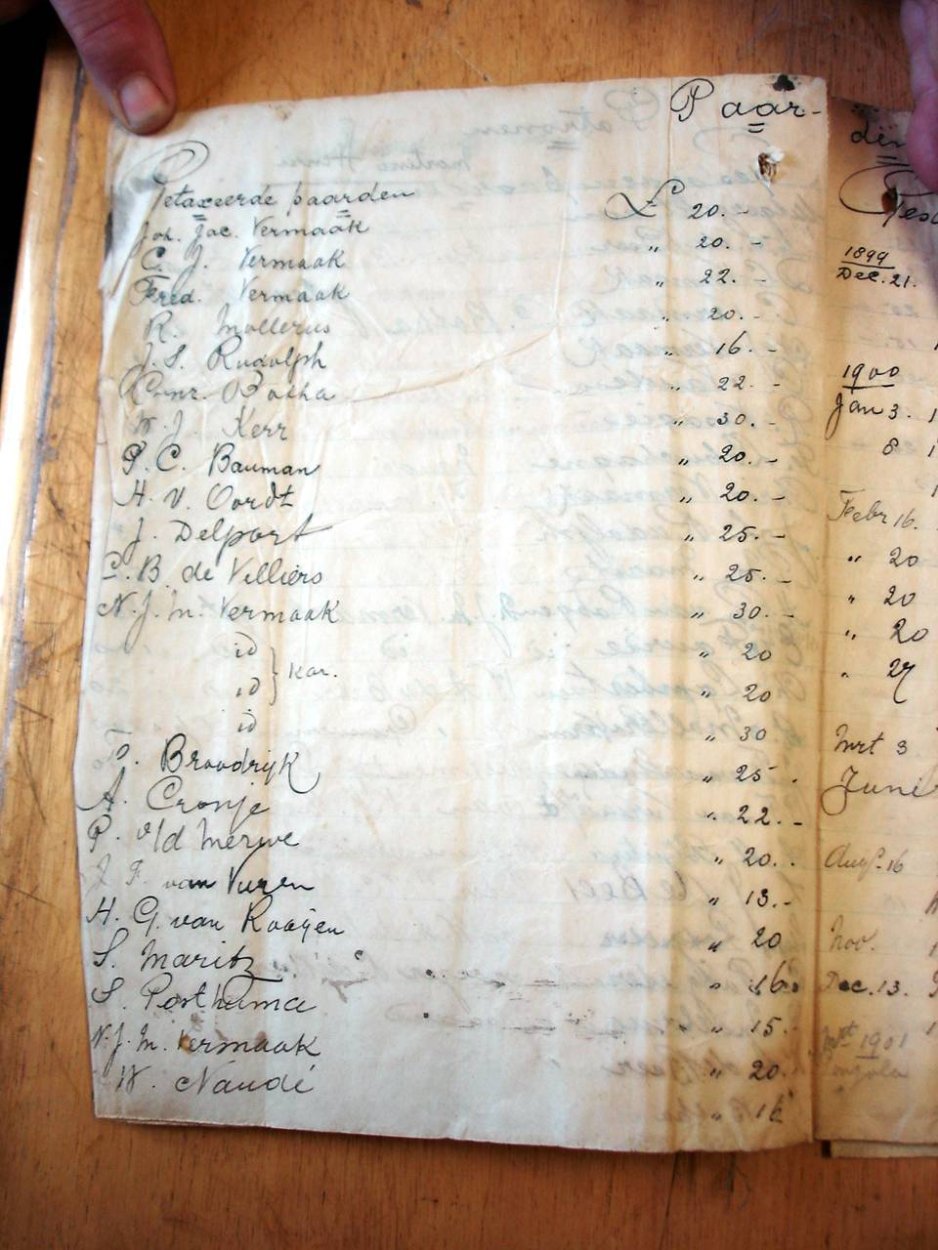 Paar-
Getaxeerde paarden
Joh. Jac. Vermaak £ 20. -
C. J. Vermaak „ 20. -
Fred. Vermaak „ 22. -
R. Mollerus „ 20. -
J. S. Rudolph „ 16. -
Conr. Botha „ 22. -
W. J. Kerr „ 30. -
P. C. Bauman „ 20. -
H. V. Oordt „ 20. -
J. Delport „ 25. -
C. B. de Villiers „ 25. -
N. J. M. Vermaak „ 30. -
id } Kar. „ 20
id „ 20
id „ 30
Broodrijk „ 25 -
A. Cronje „ 22. -
P. v/d Merwe „ 20. -
J. F. van Vuren „ 13. -
H. G. van Raaijen „ 20
S. Maritz „ 16.
S. Posthuma „ 15.
N. J. M. Vermaak „ 20.
W. Naudé „ 16
1899
Dec. 21.
1900
Jan 3.
8
Febr 16.
„ 20
„ 20
„ 20
„ 27
Mrt 3
Juni
Aug. 16
Nov.
Dec. 13.
1901